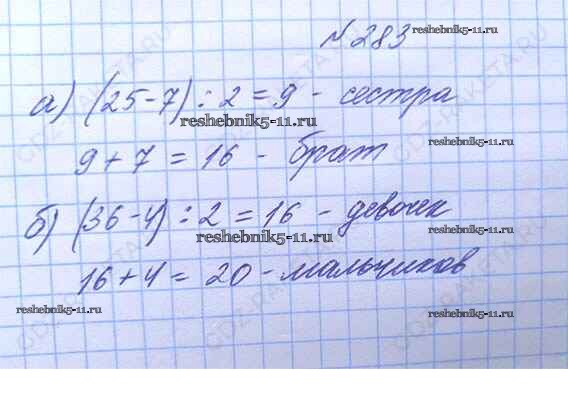 №283
reshebnik5-11.ru
а) (25-7) : 2 = 9 - сестра
reshebnik5-11.ru
9 + 7 = 16 - брат
reshebnik5-11.ru
б) (36-4) : 2 = 16 - девочек
reshebnik5-11.ru
reshebnik5-11.ru
16 + 4 = 20 - мальчиков
reshebnik5-11.ru
reshebnik5-11.ru